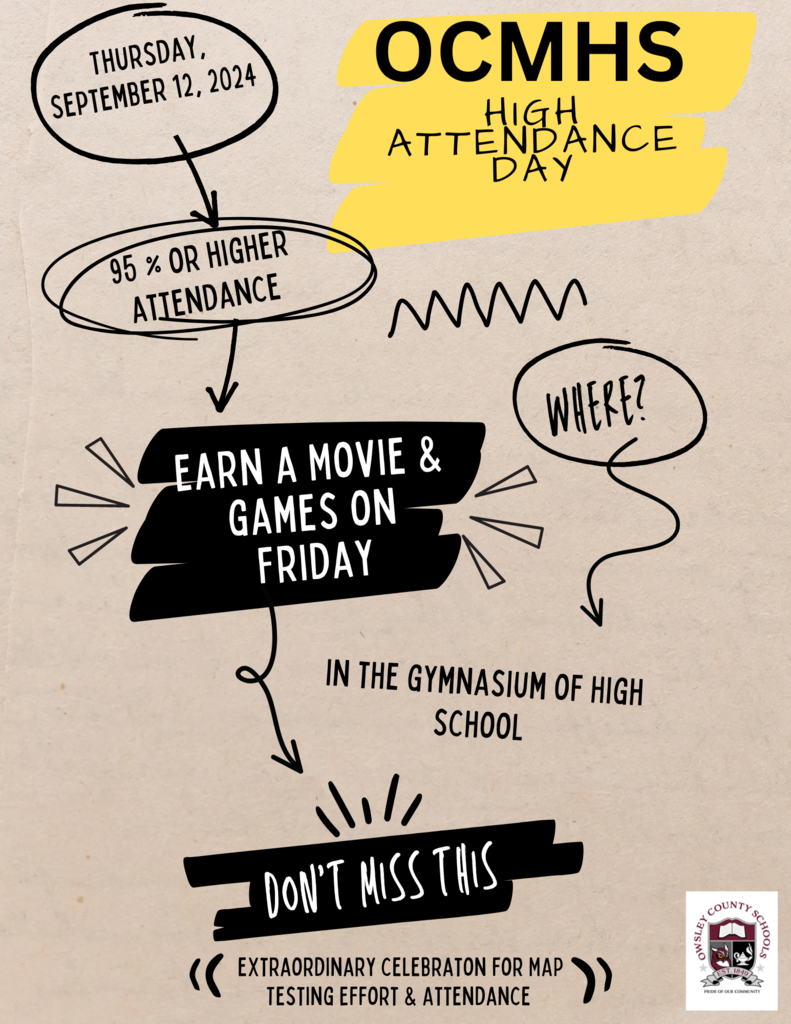 THURSDAY,
SEPTEMBER 12, 2024
OCMHS
HIGH
ATTENDANCE
DAY
95 % OR HIGHER
ATTENDANCE
WHERE?
EARN A MOVIE &
GAMES ON
FRIDAY
IN THE GYMNASIUM OF HIGH
SCHOOL
DON'T MISS THIS
EXTRAORDINARY CELEBRATON FOR MAP
TESTING EFFORT & ATTENDANCE
OWSLEY COUNTY SCHOOLS
PRIDE OF OUR COMMUNITY